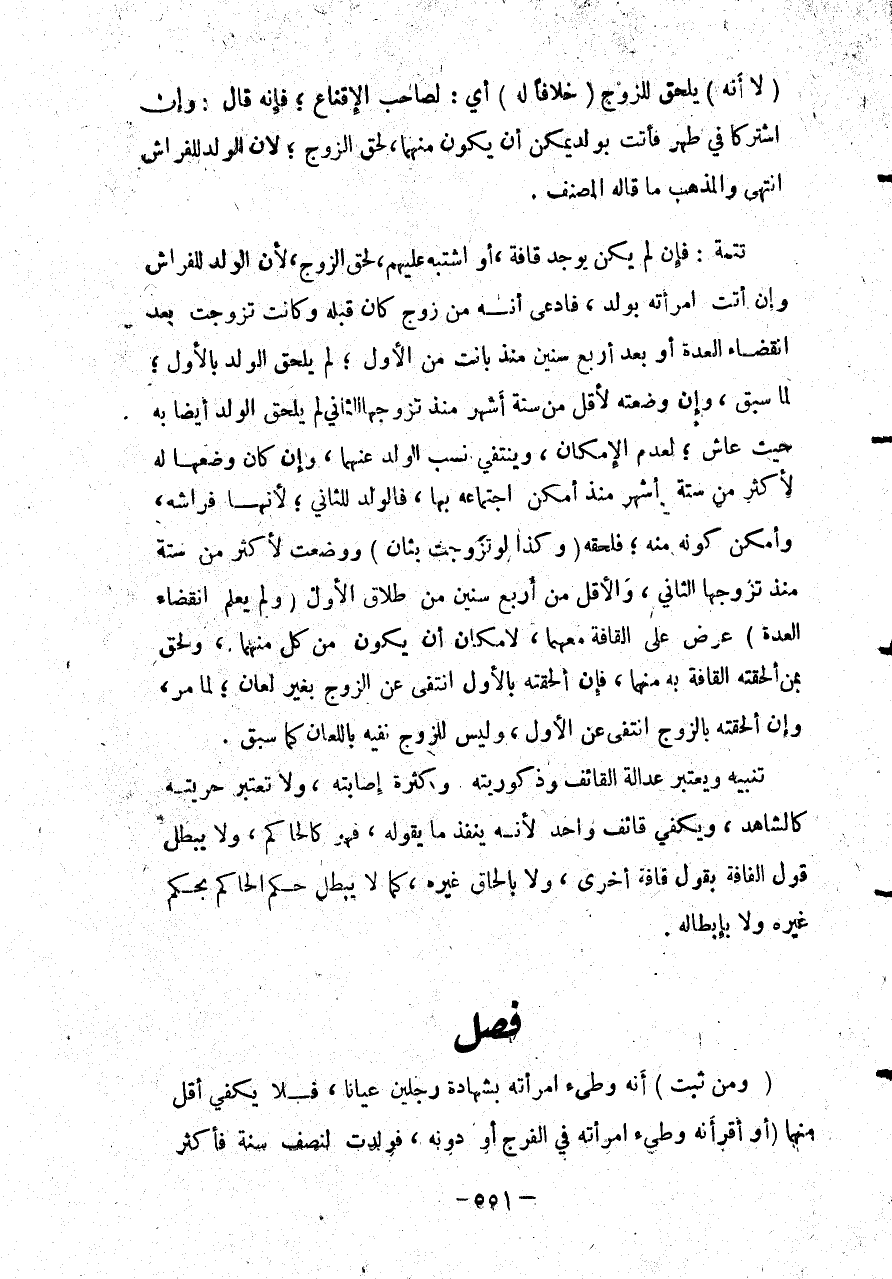 ( لا أنه ) يلحق للزوج ( خلافاً له ) أي : لصاحب الإقناع ؛ فإنه قال : وإن
اشتركا في طهر فأتت بولد يمكن أن يكون منهما، لحق الزوج ؛ لان الولد للفراش
انتهى والمذهب ما قاله المصنف .
تتمة : فإن لم يكن يوجد قافة ، أو اشتبه عليهم، لحق الزوج، لأن الولد للفراش
وإن أتت امرأته بولد ، فادعى أنـــه من زوج كان قبله وكانت تزوجت بعد
انقضـاء العدة أو بعد أربع سنين منذ بانت من الأول ؛ لم يلحق الولد بالأول ؛
لما سبق ، وإن وضعته لأقل من ستة أشهر منذ تزوجها الثاني لم يلحق الولد أيضا به
حيث عاش ؛ لعدم الإمكان ، وينتفي نسب الولد عنهما ، وإن كان وضعهـا له
لأكثر من ستة أشهر منذ أمكن اجتماعه بها ، فالولد للثاني ؛ لأنهـــا فراشه،
وأمكن كونه منه ؛ فلحقه ( وكذا لو تزوجت بثان ) ووضعت لأكثر من ستة
منذ تزوجها الثاني ، ولأقل من أربع سنين من طلاق الأول ( ولم يعلم انقضاء
العدة ) عرض على القافة معهما ، لامكان أن يكون من كل منهما ، ولحق
بمن ألحقته القافة به منهما ، فإن ألحقته بالأول انتفى عن الزوج بغير لعان ؛ لما مر ،
وإن ألحقته بالزوج انتفى عن الأول ، وليس للزوج نفيه باللعان كما سبق .
تنبيه ويعتبر عدالة القائف وذكوريته وكثرة إصابته ، ولا تعتبر حريتـه
كالشاهد ، ويكفي قائف واحد لأنـه ينفذ ما يقوله ، فهو كالحاكم ، ولا يبطل
قول القافة بقول قافة أخرى ، ولا بإلحاق غيره ، كما لا يبطل حـكم الحاكم بحـكم
غيره ولا بإبطاله .
فصل
( ومن ثبت ) أنه وطيء امرأته بشهادة رجلين عيانا ، فــلا يكفي أقل
منهما (أو أقر أنه وطيء امرأته في الفرج أو دونه ، فولدت لنصف سنة فأكثر
- ٥٥١ -